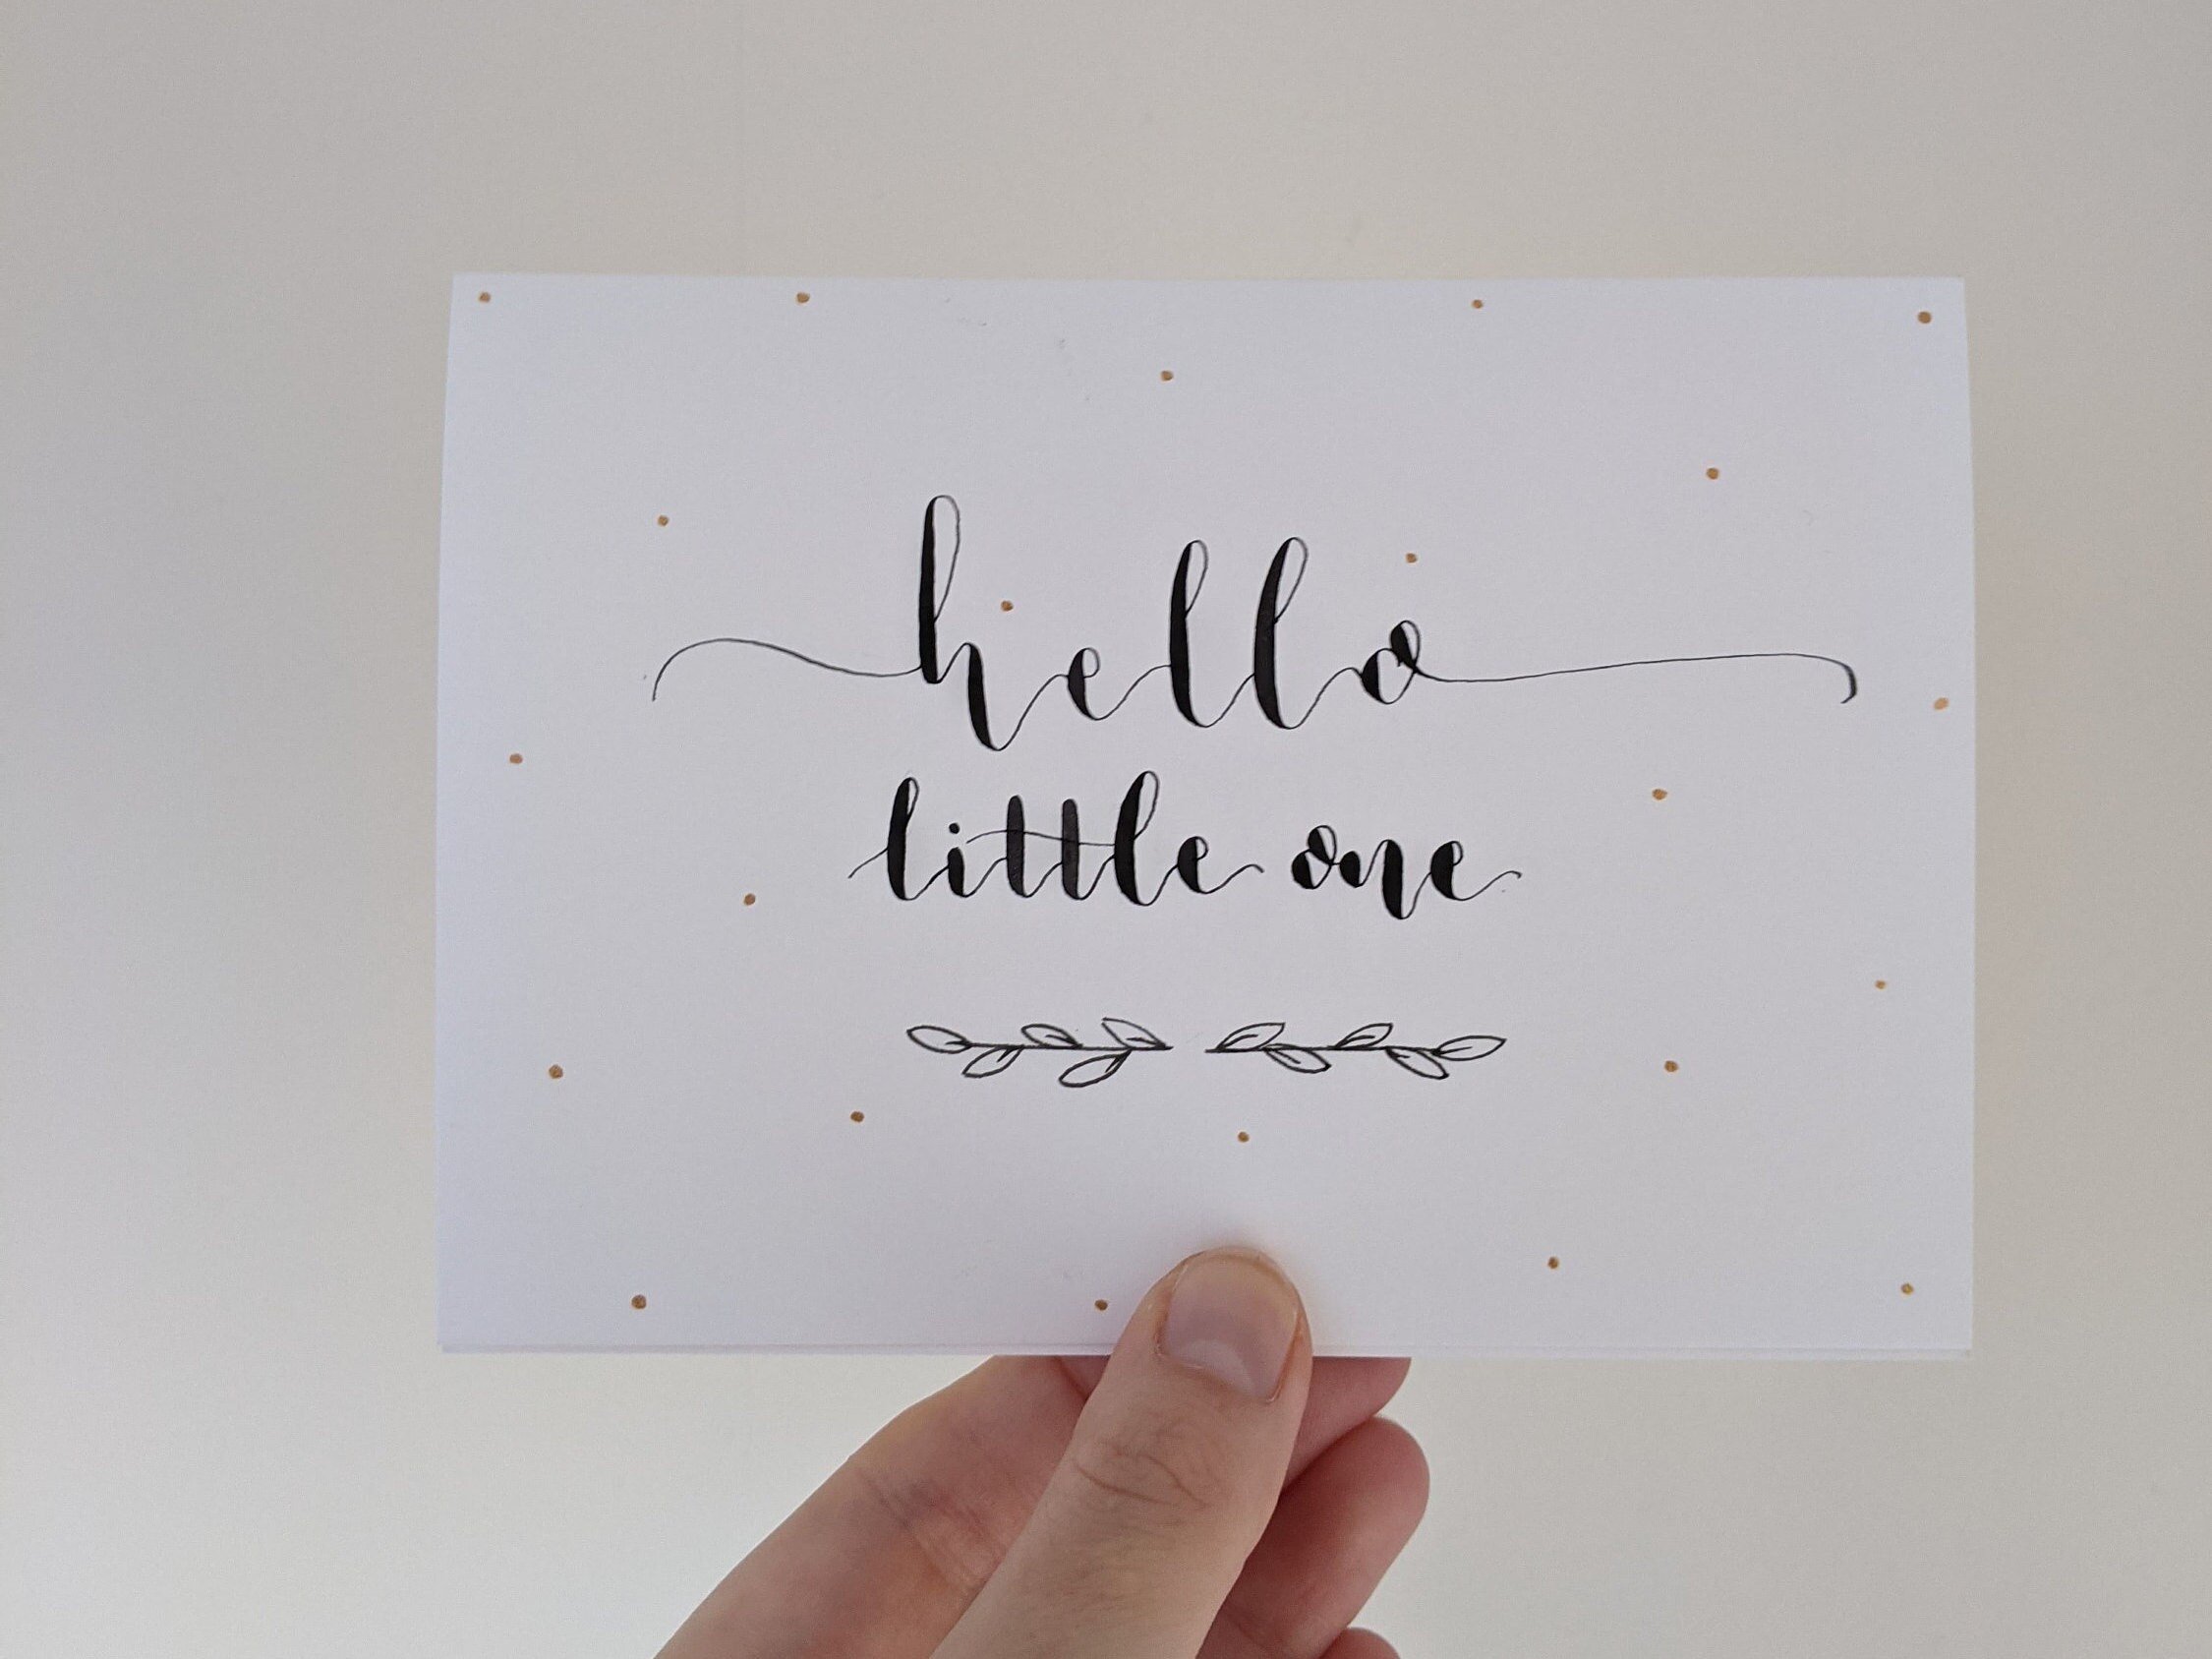 hello
little one